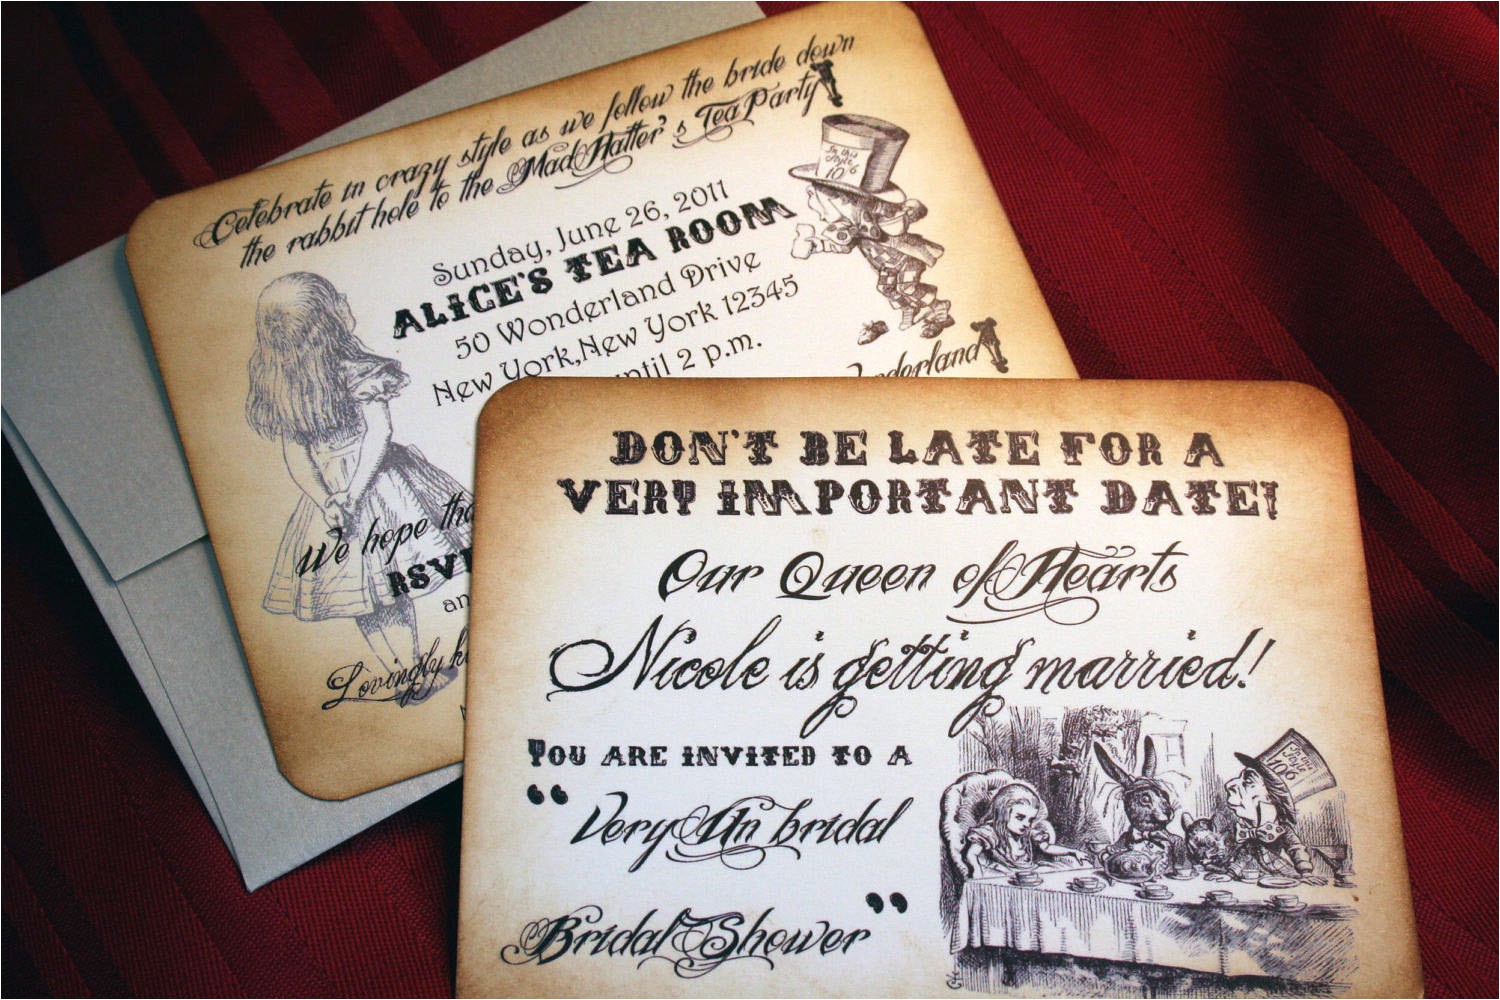 Celebrate in crazy style as we follow the bride down
the rabbit hole to the Mad Hatter's Tea Party
In this
Style
10/6
Sunday, June 26, 2011
ALICE'S TEA ROOM
50 Wonderland Drive
New York, New York 12345
until 2 p.m.
We hope
RSV
Lovingly
DON'T BE LATE FOR A
VERY IMPORTANT DATE!
Our Queen of Hearts
Nicole is getting married!
YOU ARE INVITED TO A
“Very Un bridal
Bridal Shower”
In this
Style
10/6